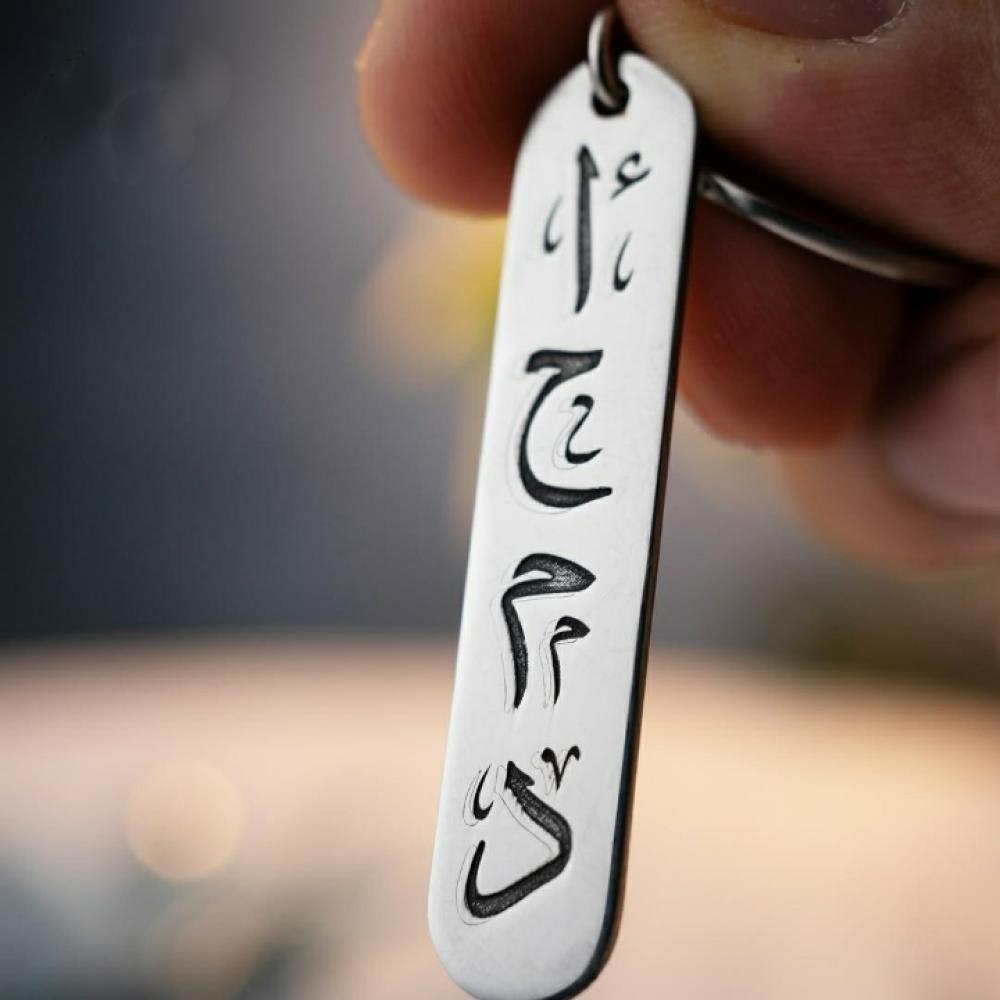 أ
ح
م
د